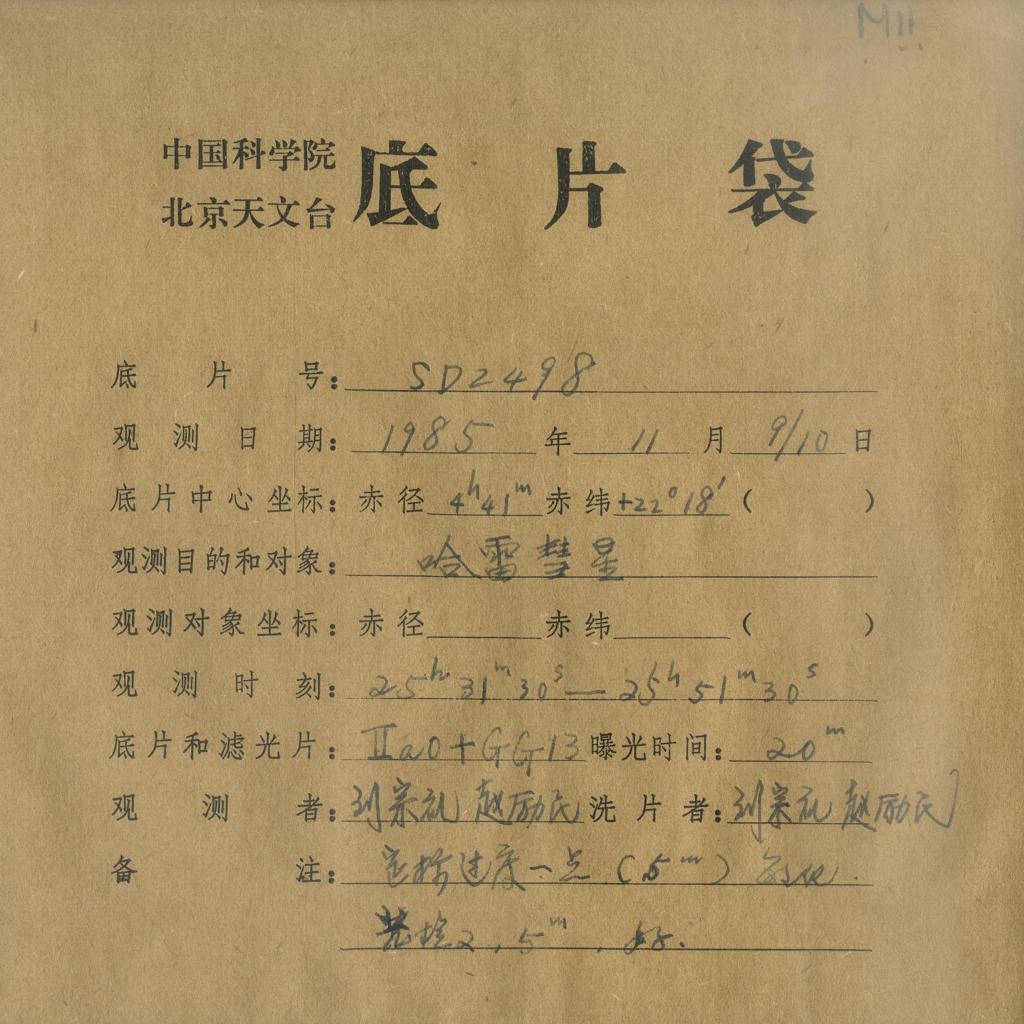 M11
中国科学院
北京天文台
底片袋
底片号: SD2498
观测日期: 1985年11月9/10日
底片中心坐标: 赤径 4h41m 赤纬 +22°18′ ( )
观测目的和对象: 哈雷彗星
观测对象坐标: 赤径 赤纬 ( )
观测时刻: 25h31m30s — 25h51m30s
底片和滤光片: IIaO+GG13 曝光时间: 20m
观测者: 刘宗礼 赵励民 洗片者: 刘宗礼 赵励民
备注: 定标过度一点 (5m) 敏化.
2, 5m, 好.